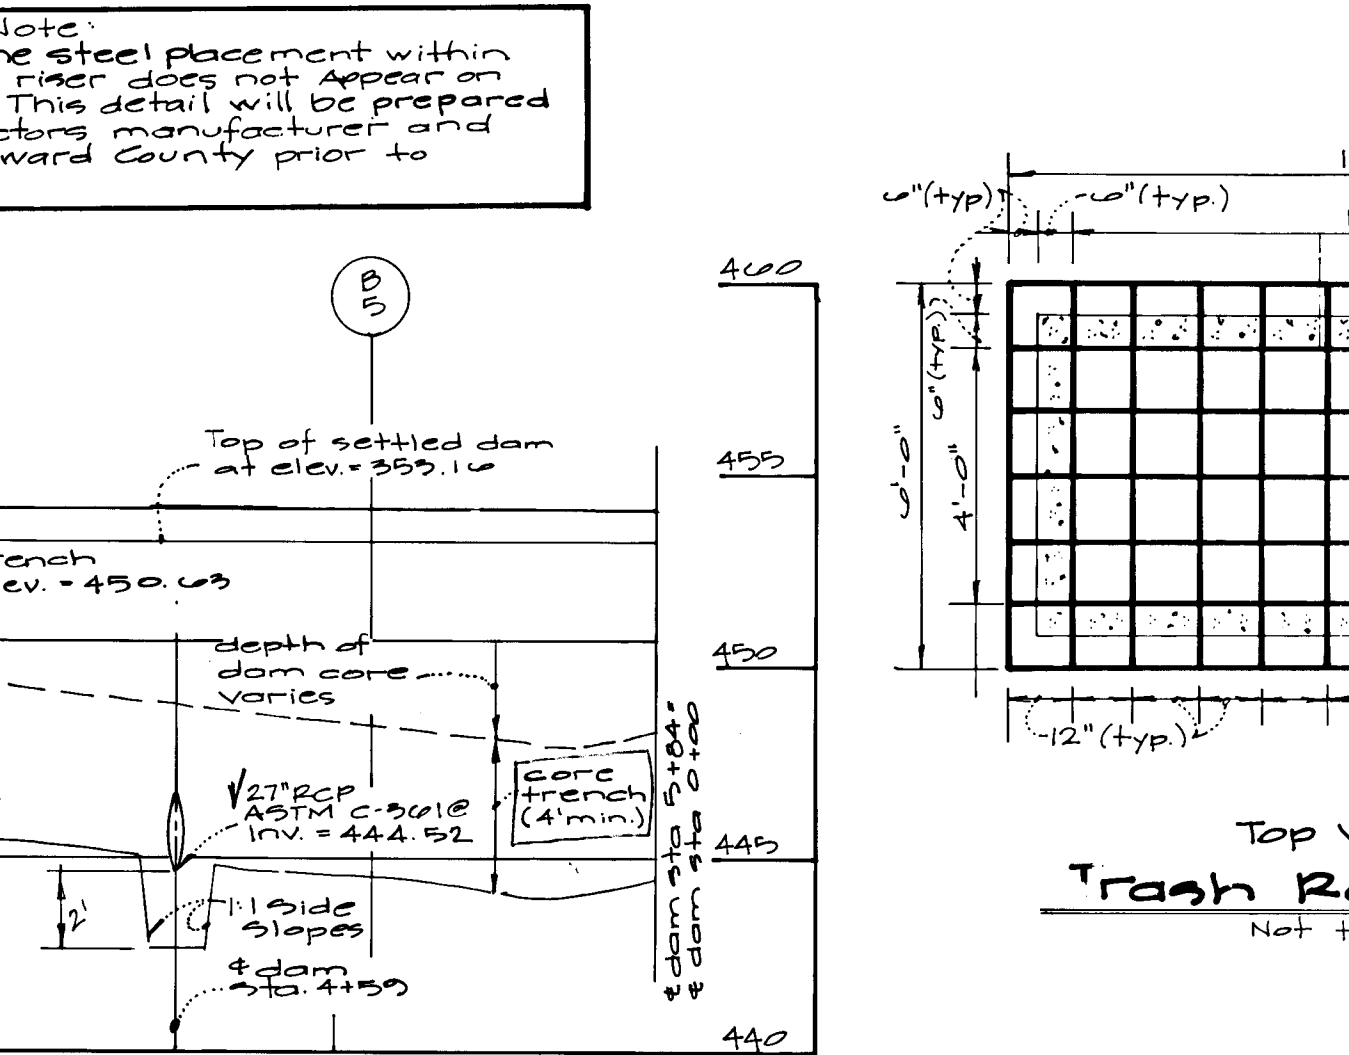 Note:
ne steel placement within
riser does not Appear on
This detail will be prepared
ctors manufacturer and
ward County prior to
B
5
Top of settled dam
at elev. = 353.16
rench
ev. = 450.63
depth of
dam core
varies
27" RCP
ASTM C-361@
Inv. = 444.52
core
trench
(4' min.)
2'
1:1 side
slopes
℄ dam
sta. 4+59
℄ dam sta 5+84=
℄ dam sta 0+00
460
455
450
445
440
6"(typ)
6"(typ.)
6"(typ.)
6'-0"
4'-0"
12"(typ.)
Top V
Trash Ra
Not t